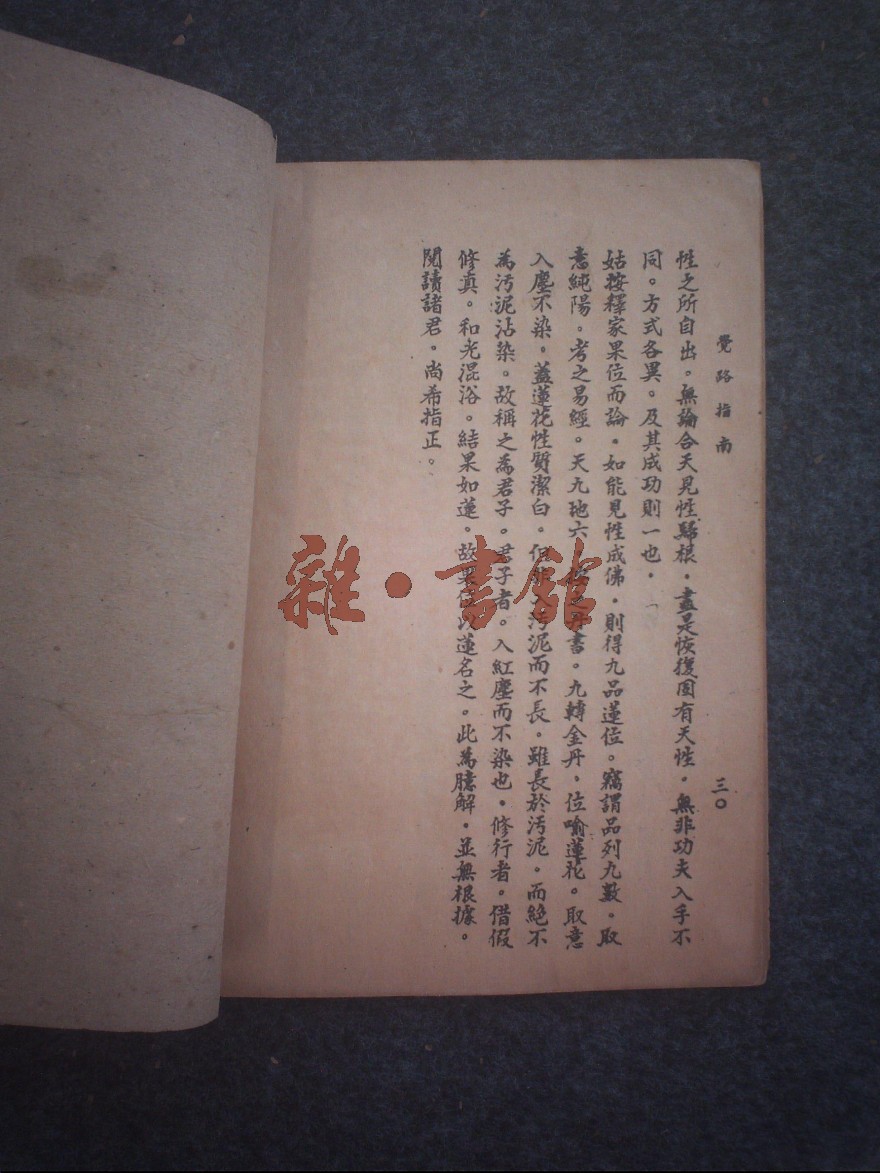 覺路指南
三〇
性之所自出。無論合天見性歸根。盡是恢復固有天性。無非功夫入手不
同。方式各異。及其成功則一也。
姑按釋家果位而論。如能見性成佛。則得九品蓮位。竊謂品列九數。取
意純陽。考之易經。天九地六 書。九轉金丹。位喻蓮花。取意
入塵不染。蓋蓮花性質潔白。但 污泥而不長。雖長於污泥。而絕不
為污泥沾染。故稱之為君子。君子者。入紅塵而不染也。修行者。借假
修真。和光混浴。結果如蓮。故果位以蓮名之。此為臆解。並無根據。
閱讀諸君。尚希指正。
雜·書館